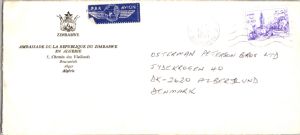 ZIMBABWE
AMBASSADE DE LA REPUBLIQUE DU ZIMBABWE
EN ALGERIE
Alger
Algérie
PAR AVION
OSTERMAN PETERSEN BROS LTD
SYDERROGEN 40
DK-2620 ALBERTSLUND
DENMARK